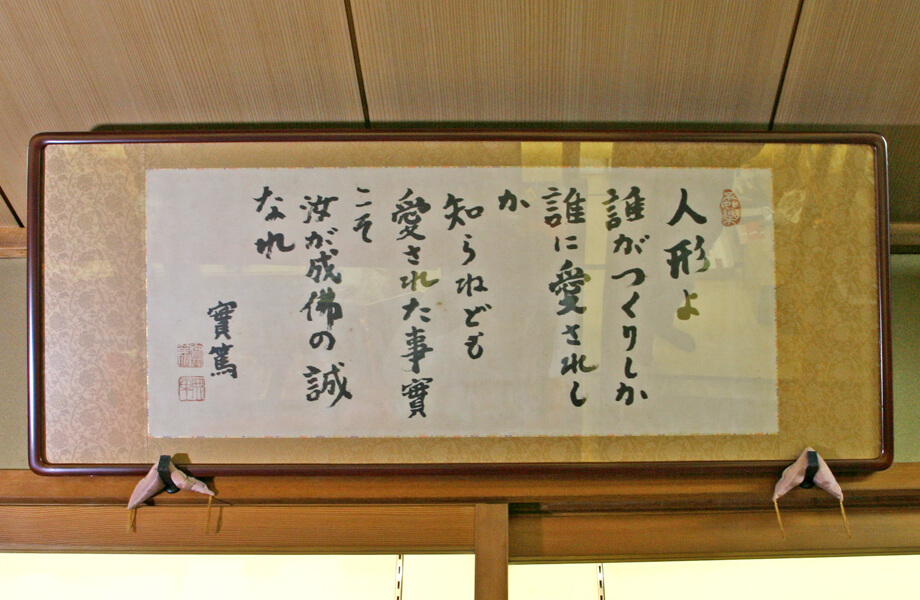 人形よ
誰がつくりしか
誰に愛されし
か
知らねども
愛された事實
こそ
汝が成佛の誠
なれ
實篤